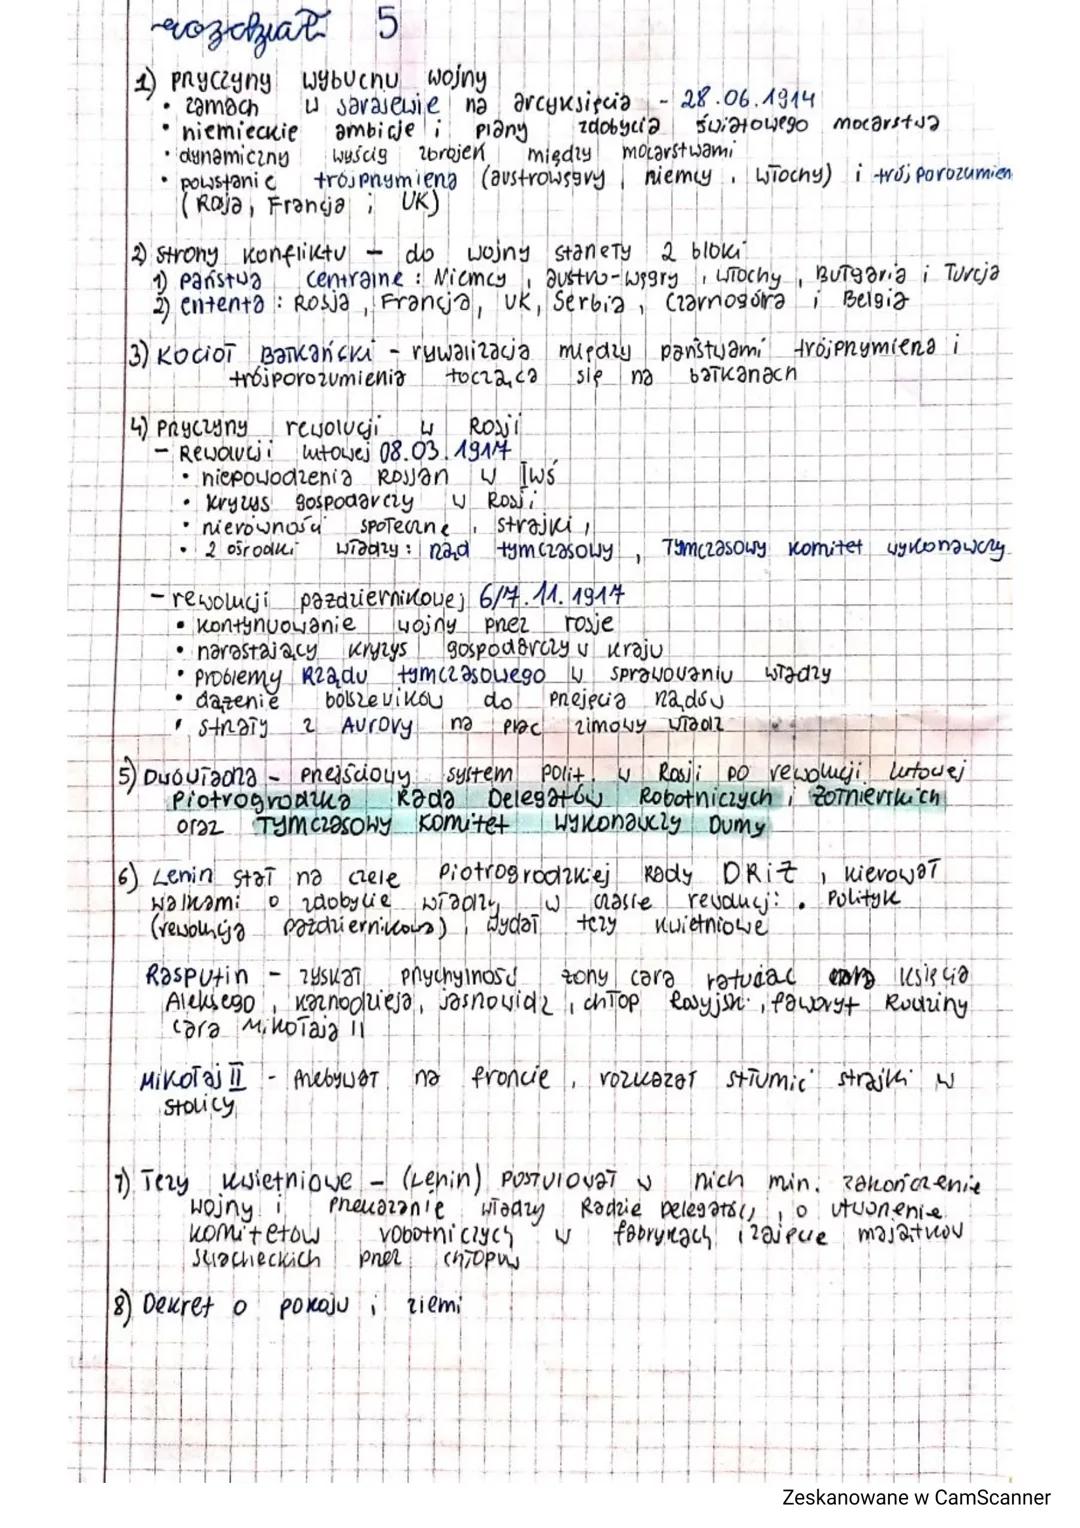 rozdział 5
1) przyczyny wybuchu wojny
• zamach w sarajewie na arcyksięcia - 28.06.1914
• niemieckie ambicje i plany zdobycia światowego mocarstwa
• dynamiczny wyścig zbrojeń między mocarstwami
• powstanie trójprzymierza (austrowęgry, niemcy, włochy) i trójporozumien
(Rosja, Francja i UK)
2) strony konfliktu - do wojny stanęły 2 bloki
1) państwa centralne: Niemcy, austro-węgry, włochy, Bułgaria i Turcja
2) ententa: Rosja, Francja, UK, Serbia, Czarnogóra i Belgia
3) Kocioł Bałkański - rywalizacja między państwami trójprzymierza i
trójporozumienia tocząca się na bałkanach
4) przyczyny rewolucji w Rosji
- Rewolucji lutowej 08.03.1917
• niepowodzenia Rosjan w Iwś
• kryzys gospodarczy w Rosji
• nierówności społeczne, strajki,
• 2 ośrodki władzy: rząd tymczasowy, Tymczasowy komitet wykonawczy
- rewolucji październikowej 6/7.11.1917
• kontynuowanie wojny przez rosje
• narastający kryzys gospodarczy w kraju
• problemy Rządu tymczasowego w sprawowaniu władzy
• dążenie bolszewików do przejęcia rządów
• strzały z Aurory na płac zimowy władz
5) Dwówładza - przejściowy system polit. w Rosji po rewolucji lutowej
Piotrogrodzka Rada Delegatów Robotniczych i Żołnierskich
oraz Tymczasowy Komitet Wykonawczy Dumy
6) Lenin stał na czele Piotrogrodzkiej Rady DRiŻ, kierował
walkami o zdobycie władzy w czasie rewolucji. Polityk
(rewolucja październikowa), wydał tezy kwietniowe
Rasputin - zyskał przychylność żony cara ratując księcia
Aleksego, kaznodzieja, jasnowidz, chłop Rosyjski, faworyt Rodziny
cara Mikołaja II
Mikołaj II - przebywał na froncie, rozkazał stłumić strajki w
stolicy
7) Tezy kwietniowe - (Lenin) postulował w nich min. zakończenie
wojny i przekazanie władzy Radzie Delegatów, o utworzenie
komitetów robotniczych w fabrykach i zajęcie majątków
szlacheckich przez chłopów
8) Dekret o pokoju i ziemi
Zeskanowane w CamScanner